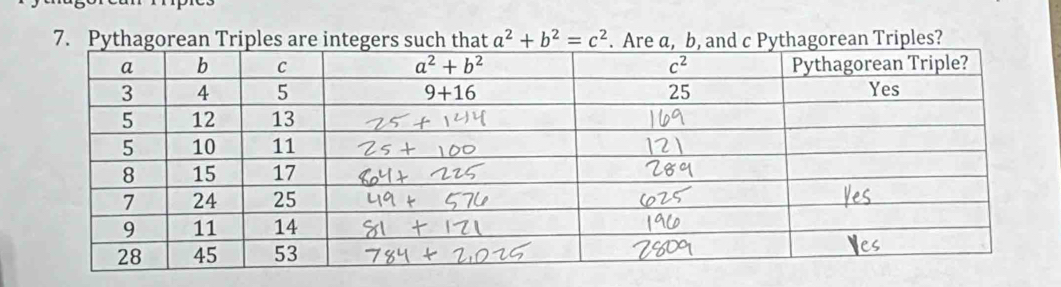 7. Pythagorean Triples are integers such that a² + b² = c². Are a, b, and c Pythagorean Triples?
a b c a² + b² c² Pythagorean Triple?
3 4 5 9+16 25 Yes
5 12 13 25 + 144 169
5 10 11 25 + 100 121
8 15 17 64 + 225 289
7 24 25 49 + 576 625 Yes
9 11 14 81 + 121 196
28 45 53 784 + 2,025 2809 Yes